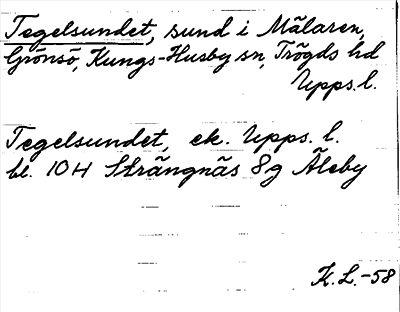 Tegelsundet, sund i Mälaren,
Grönsö, Kungs-Husby sn, Trögds hd
Upps. l.
Tegelsundet, ek. Upps. l.
bl. 10H Strängnäs 8g Åleby
K.L.-58